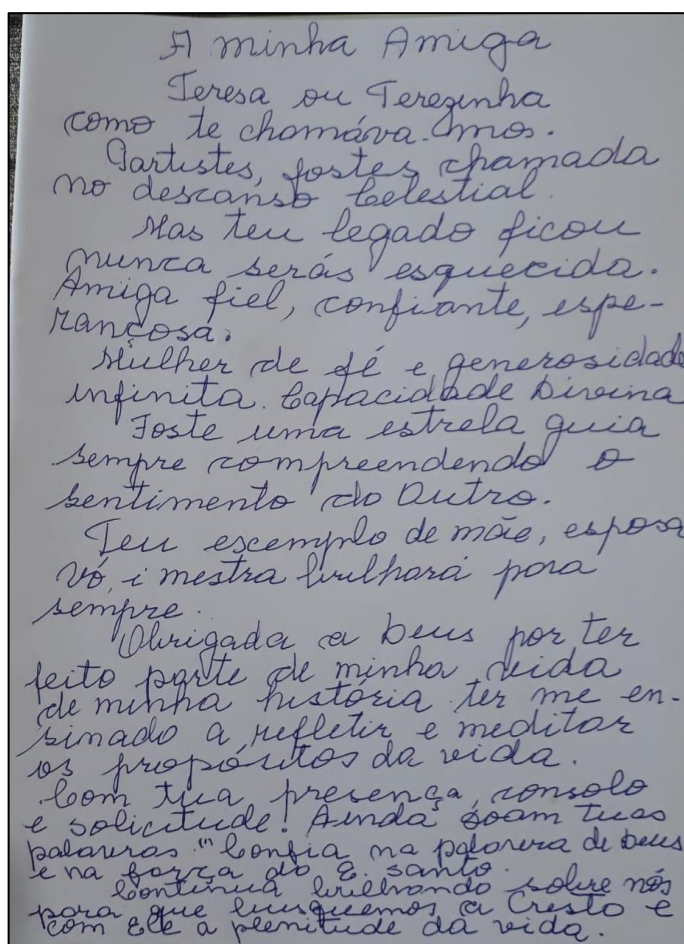 A minha Amiga
Teresa ou Terezinha
como te chamáva-mos.
Partistes, fostes chamada
no descanso Celestial.
Mas teu legado ficou
nunca serás esquecida.
Amiga fiel, confiante, espe-
rançosa.
Mulher de fé e generosidade
infinita. Capacidade Divina
Foste uma estrela guia
sempre compreendendo o
sentimento do Outro.
Teu exemplo de mãe, esposa
vó, i mestra brilhará para
sempre.
Obrigada a Deus por ter
feito parte de minha vida
de minha história ter me en-
sinado a refletir e meditar
os propósitos da vida.
Com tua presença, consolo
e solicitude! Ainda soam tuas
palavras "Confia na palavra de Deus
e na força do E. santo.
Continua brilhando sobre nós
para que busquemos a Cristo e
com Ele a plenitude da vida.